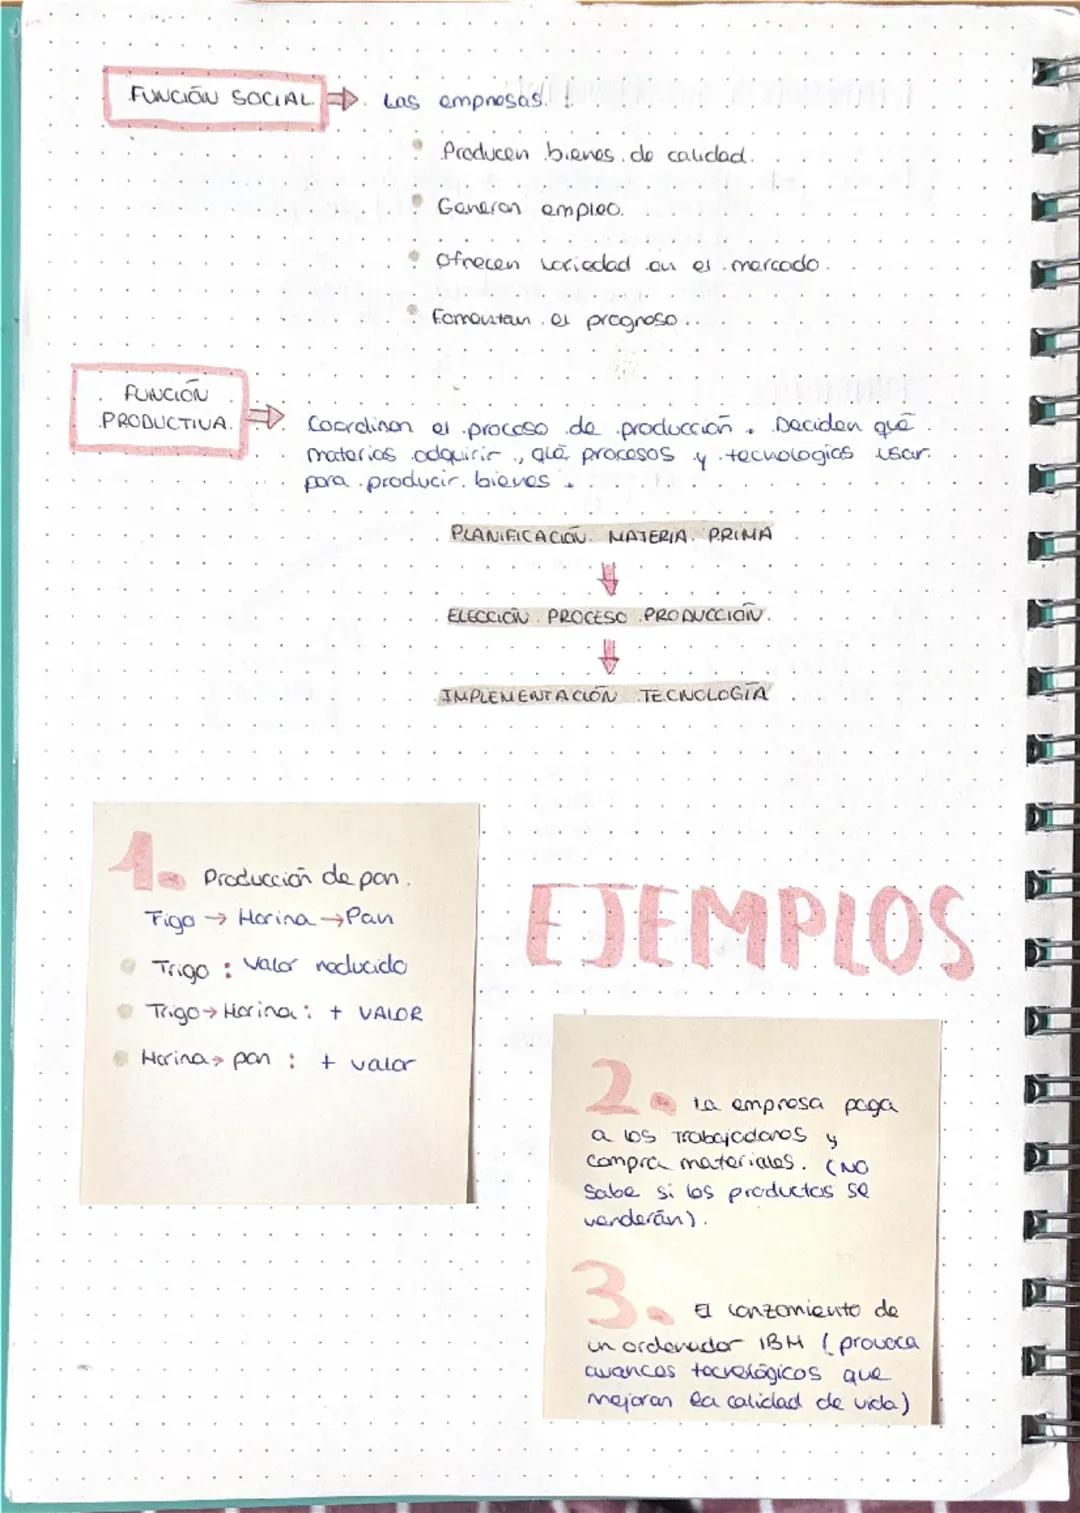 FUNCIÓN SOCIAL ⇒ Las empresas :
• Producen bienes de calidad.
• Generan empleo.
• Ofrecen variedad en el mercado.
• Fomentan el progreso.
FUNCIÓN
PRODUCTIVA. ⇒ Coordinan el proceso de producción. Deciden qué
materias adquirir, qué procesos y tecnologías usar
para producir bienes.
PLANIFICACIÓN MATERIA PRIMA
↓
ELECCIÓN PROCESO PRODUCCIÓN
↓
IMPLEMENTACIÓN TECNOLOGÍA
1. Producción de pan.
Tigo → Harina → Pan
• Trigo : Valor reducido
• Trigo → Harina : + VALOR
• Harina → pan : + valor
EJEMPLOS
2. La empresa paga
a los trabajadores y
compra materiales. (No
sabe si los productos se
venderán).
3. El lanzamiento de
un ordenador IBM (provoca
avances tecnológicos que
mejoran la calidad de vida)